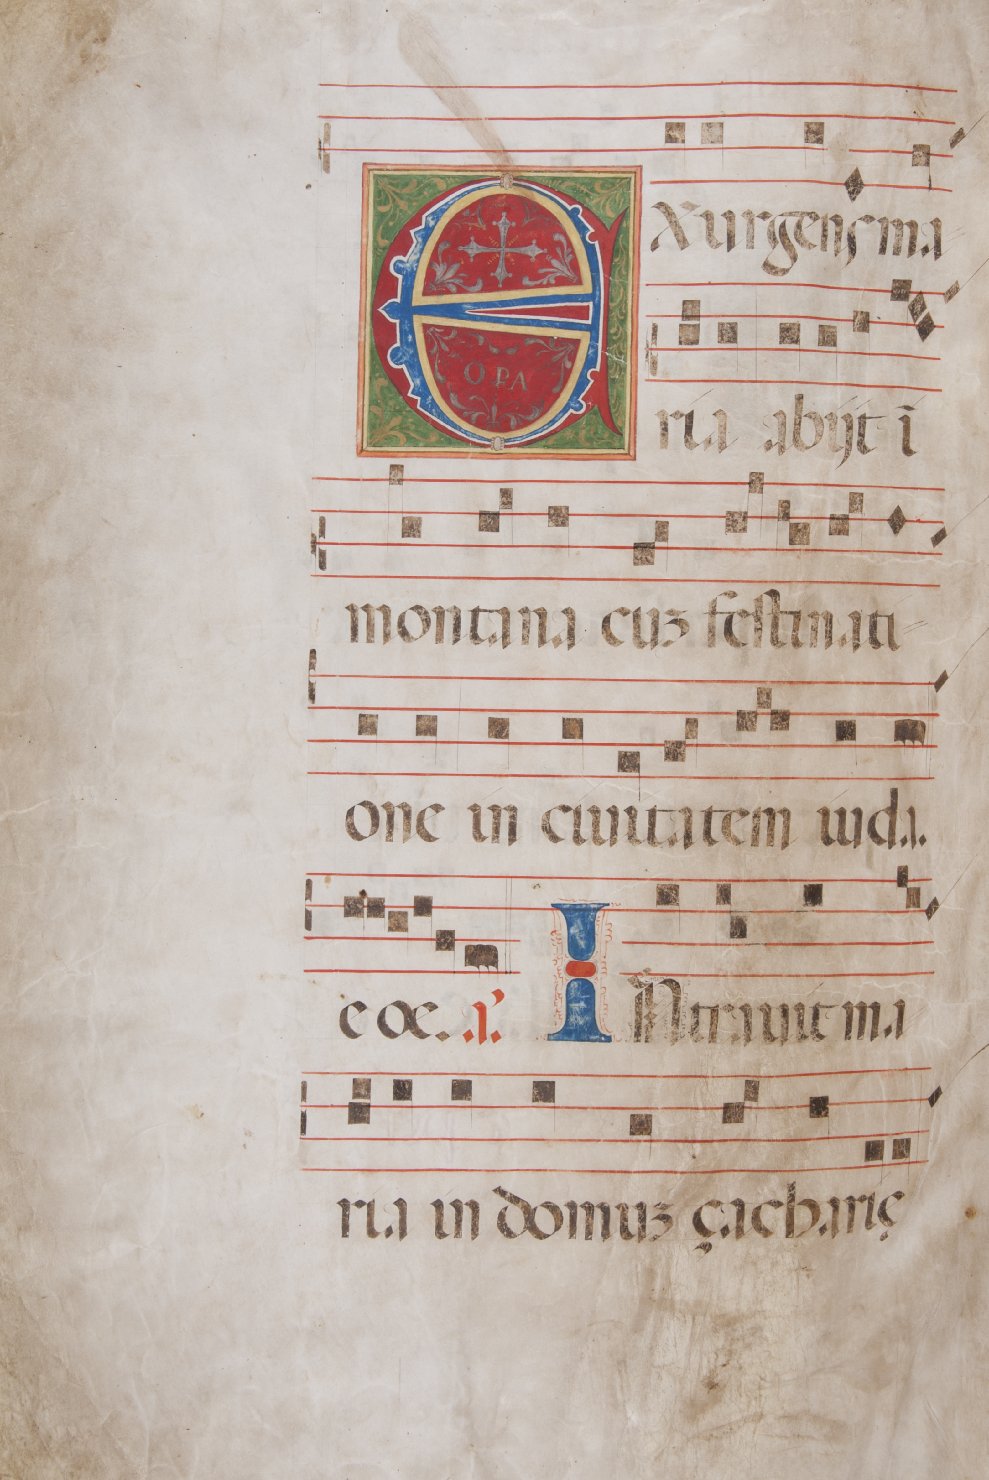 EXurgens ma
OPA
ria abijt ī
montana cuȝ festinati
one in ciuitatem iuda.
e oe. a'.
INtrauit ma
ria in domuȝ çacharię